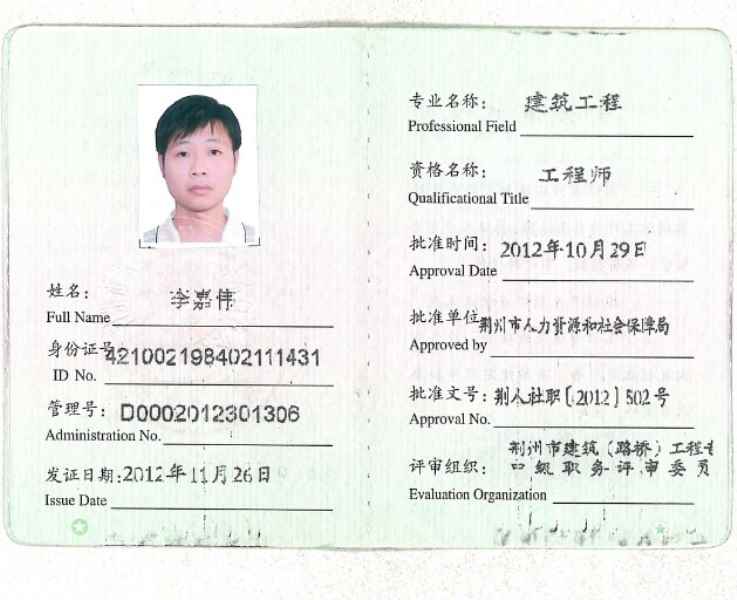 姓名：李嘉伟
Full Name
身份证号421002198402111431
ID No.
管理号：D0002012301306
Administration No.
发证日期:2012年11月26日
Issue Date
专业名称：建筑工程
Professional Field
资格名称：工程师
Qualificational Title
批准时间：2012年10月29日
Approval Date
批准单位荆州市人力资源和社会保障局
Approved by
批准文号：荆人社职〔2012〕502号
Approval No.
荆州市建筑（路桥）工程专
评审组织：中级职务评审委员
Evaluation Organization